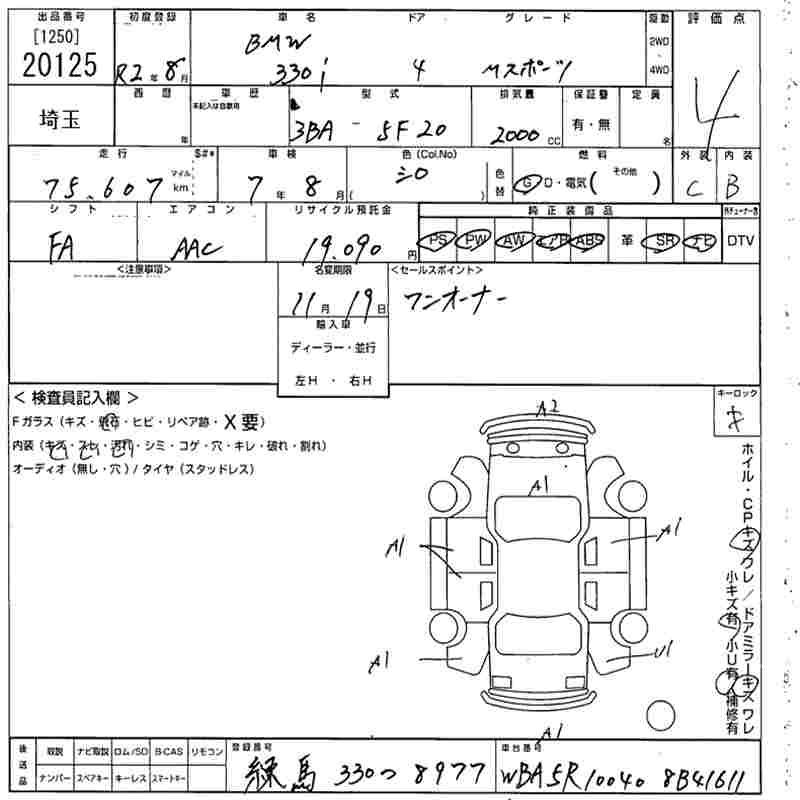 出品番号 初度登録 車名 ドア グレード 駆動 評価点
[1250] 20125
R2年8月 BMW 330i 4 Mスポーツ 2WD・4WD 4
埼玉 西暦 年 車歴 未記入は自家用 型式 3BA - 5F20 排気量 2000cc 保証書 有・無 定員 名
走行 75,607 マイル km $#* 車検 7年8月 色(Col.No) シロ ( ) 色替 燃料 G・D・電気( その他 ) 外装 C 内装 B
シフト FA エアコン AAC リサイクル預託金 19,090円 純正装備品 PS PW AW エアB ABS 革 SR ナビ DTV
<注意事項> 名変期限 11月19日 <セールスポイント>
ワンオーナー
輸入車
ディーラー・並行
左H・右H
<検査員記入欄> キーロック
キ
Fガラス(キズ・飛石・ヒビ・リペア跡・X要)
内装(キズ・スレ・汚れ・シミ・コゲ・穴・キレ・破れ・割れ)
オーディオ(無し・穴)/タイヤ(スタッドレス)
A2
A1
A1 A1
A1 U1
A1
ホイル・CPキズワレ/ドアミラーキズワレ
小キズ有 小U有 補修有
後送品 取説 ナビ取説 ロム/SD B-CAS リモコン
ナンバー スペアキー キーレス スマートキー
登録番号 練馬 330つ8977
車台番号 WBA5R100408B41611